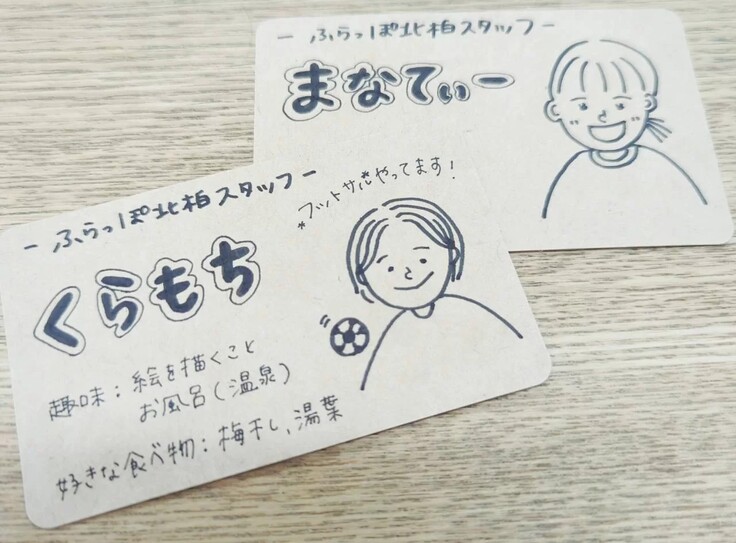 - ふらっぽ北柏スタッフ -
まなてぃー
- ふらっぽ北柏スタッフ -
*フットサルやってます!
くらもち
趣味:絵を描くこと
お風呂(温泉)
好きな食べ物:梅干し、湯葉